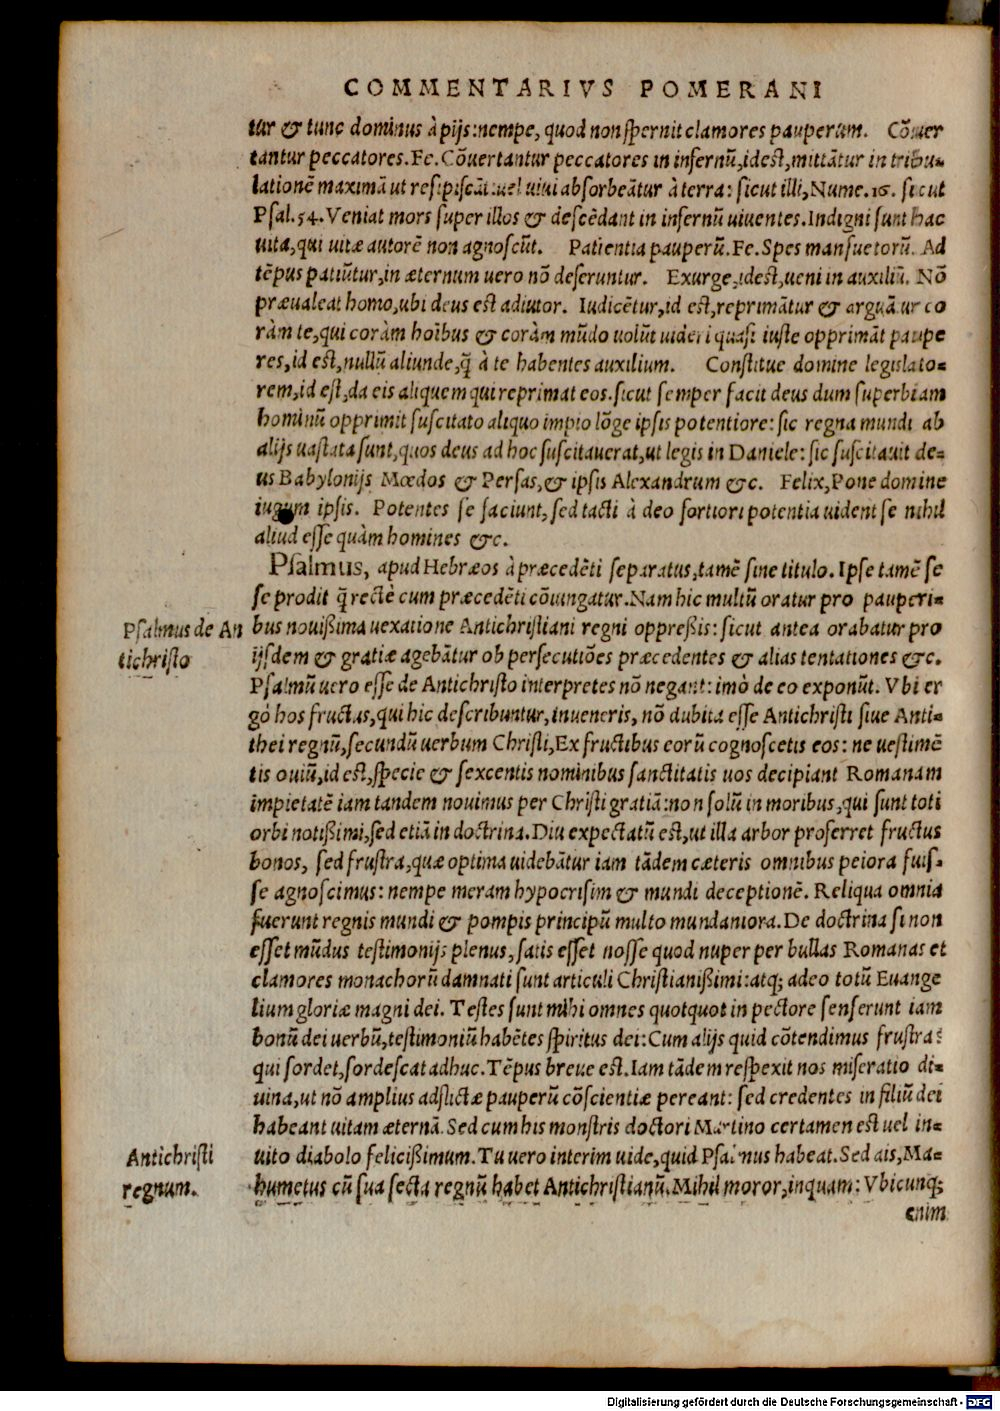 COMMENTARIVS POMERANI
tur & tunc dominus à pijs: nempe, quod non spernit clamores pauperum. Cõuer
tantur peccatores. Fe. Cõuertantur peccatores in infernũ, id est, mittãtur in tribu-
lationẽ maximã ut resipiscãt: uel uiui absorbeãtur à terra: sicut illi, Nume. 16. sicut
Psal. 54. Veniat mors super illos & descẽdant in infernũ uiuentes. Indigni sunt hac
uita, qui uitæ autorẽ non agnoscũt. Patientia pauperũ. Fe. Spes mansuetorũ. Ad
tẽpus patiũtur, in æternum uero nõ deseruntur. Exurge, id est, ueni in auxiliũ. Nõ
præualeat homo, ubi deus est adiutor. Iudicẽtur, id est, reprimãtur & arguãtur co
ràm te, qui coràm hoĩbus & coràm mũdo uolũt uideri quasi iuste opprimãt paupe
res, id est, nullũ aliunde, q̃ à te habentes auxilium. Constitue domine legislato-
rem, id est, da eis aliquem qui reprimat eos. sicut semper facit deus dum superbiam
hominũ opprimit suscitato aliquo impio lõge ipsis potentiore: sic regna mundi ab
alijs uastata sunt, quos deus ad hoc suscitauerat, ut legis in Daniele: sic suscitauit de-
us Babylonijs Mœdos & Persas, & ipsis Alexandrum &c. Felix, Pone domine
iugum ipsis. Potentes se faciunt, sed tacti à deo fortiori potentia uident se nihil
aliud esse quàm homines &c.
Psalmus, apud Hebræos à præcedẽti separatus, tamẽ sine titulo. Ipse tamẽ se
se prodit q̃ rectè cum præcedẽti cõiungatur. Nam hic multũ oratur pro pauperi-
Psalmus de An
tichristo
bus nouißima uexatione Antichristiani regni oppreßis: sicut antea orabatur pro
ijsdem & gratiæ agebãtur ob persecutiões præcedentes & alias tentationes &c.
Psalmũ uero esse de Antichristo interpretes nõ negant: imò de eo exponũt. Vbi er
gò hos fructus, qui hic describuntur, inueneris, nõ dubita esse Antichristi siue Anti-
thei regnũ, secundũ uerbum Christi, Ex fructibus eorũ cognoscetis eos: ne uestimẽ
tis ouiũ, id est, specie & sexcentis nominibus sanctitatis uos decipiant Romanam
impietatẽ iam tandem nouimus per Christi gratiã: non solũ in moribus, qui sunt toti
orbi notißimi, sed etiã in doctrina. Diu expectatũ est, ut illa arbor proferret fructus
bonos, sed frustra, quæ optima uidebãtur iam tãdem cæteris omnibus peiora fuis-
se agnoscimus: nempe meram hypocrisim & mundi deceptionẽ. Reliqua omnia
fuerunt regnis mundi & pompis principũ multo mundaniora. De doctrina si non
esset mũdus testimonijs plenus, satis esset nosse quod nuper per bullas Romanas et
clamores monachorũ damnati sunt articuli Christianißimi: atq; adeo totũ Euange
lium gloriæ magni dei. Testes sunt mihi omnes quotquot in pectore senserunt iam
bonũ dei uerbũ, testimoniũ habẽtes spiritus dei: Cum alijs quid cõtendimus frustra?
qui sordet, sordescat adhuc. Tẽpus breue est. Iam tãdem respexit nos miseratio di-
uina, ut nõ amplius adflictæ pauperũ cõscientiæ pereant: sed credentes in filiũ dei
habeant uitam æternã. Sed cum his monstris doctori Martino certamen est uel in-
Antichristi
regnum.
uito diabolo felicißimum. Tu uero interim uide, quid Psalmus habeat. Sed ais, Ma-
humetus cũ sua secta regnũ habet Antichristianũ. Nihil moror, inquam: Vbicunq;
enim
Digitalisierung gefördert durch die Deutsche Forschungsgemeinschaft - DFG